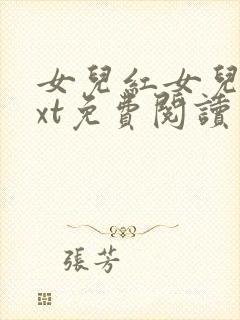 女兒紅女兒
xt免費閱讀
張芳